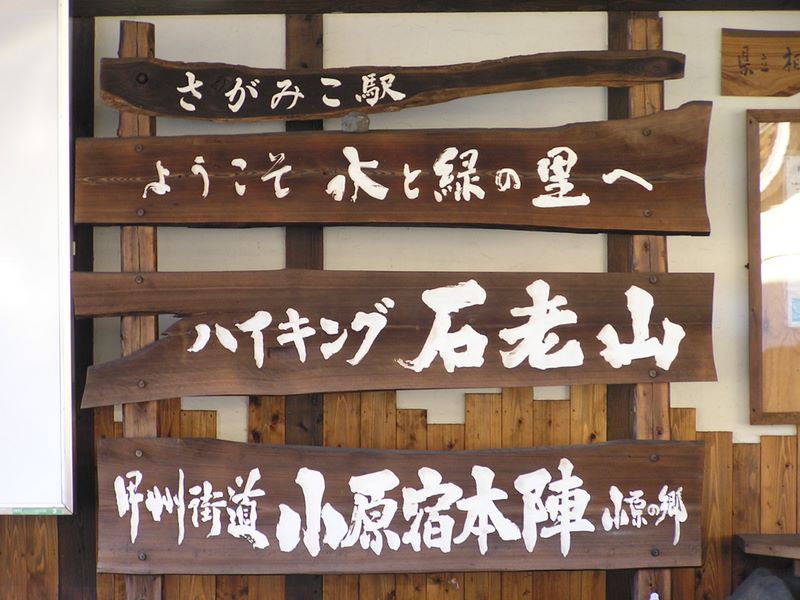 さがみこ駅
ようこそ 水と緑の里へ
ハイキング 石老山
甲州街道 小原宿本陣 小原の郷
県立 相